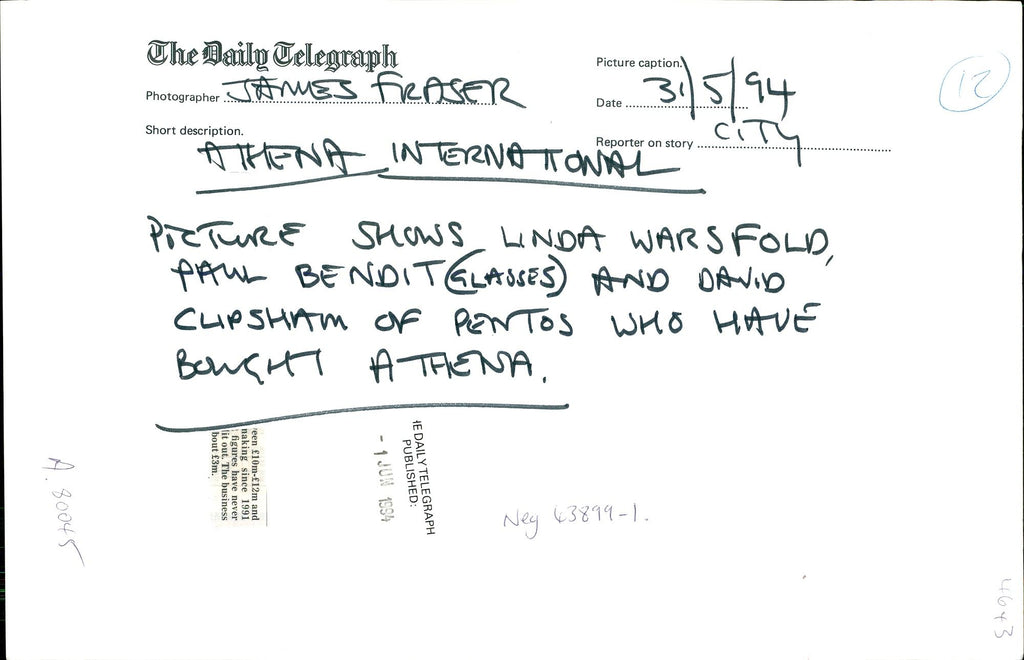 The Daily Telegraph
Photographer JAMES FRASER
Picture caption.
Date 31/5/94
Short description.
Reporter on story CITY
12
ATHENA INTERNATIONAL
PICTURE SHOWS LINDA WARSFOLD,
PAUL BENDIT (GLASSES) AND DAVID
CLIPSHAM OF PENTOS WHO HAVE
BOUGHT ATHENA.
een £10m-£12m and
naking since 1991
figures have never
lit out. The business
bout £3m.
HE DAILY TELEGRAPH
PUBLISHED:
- 1 JUN 1994
Neg 43899-1.
A. 80045
4643